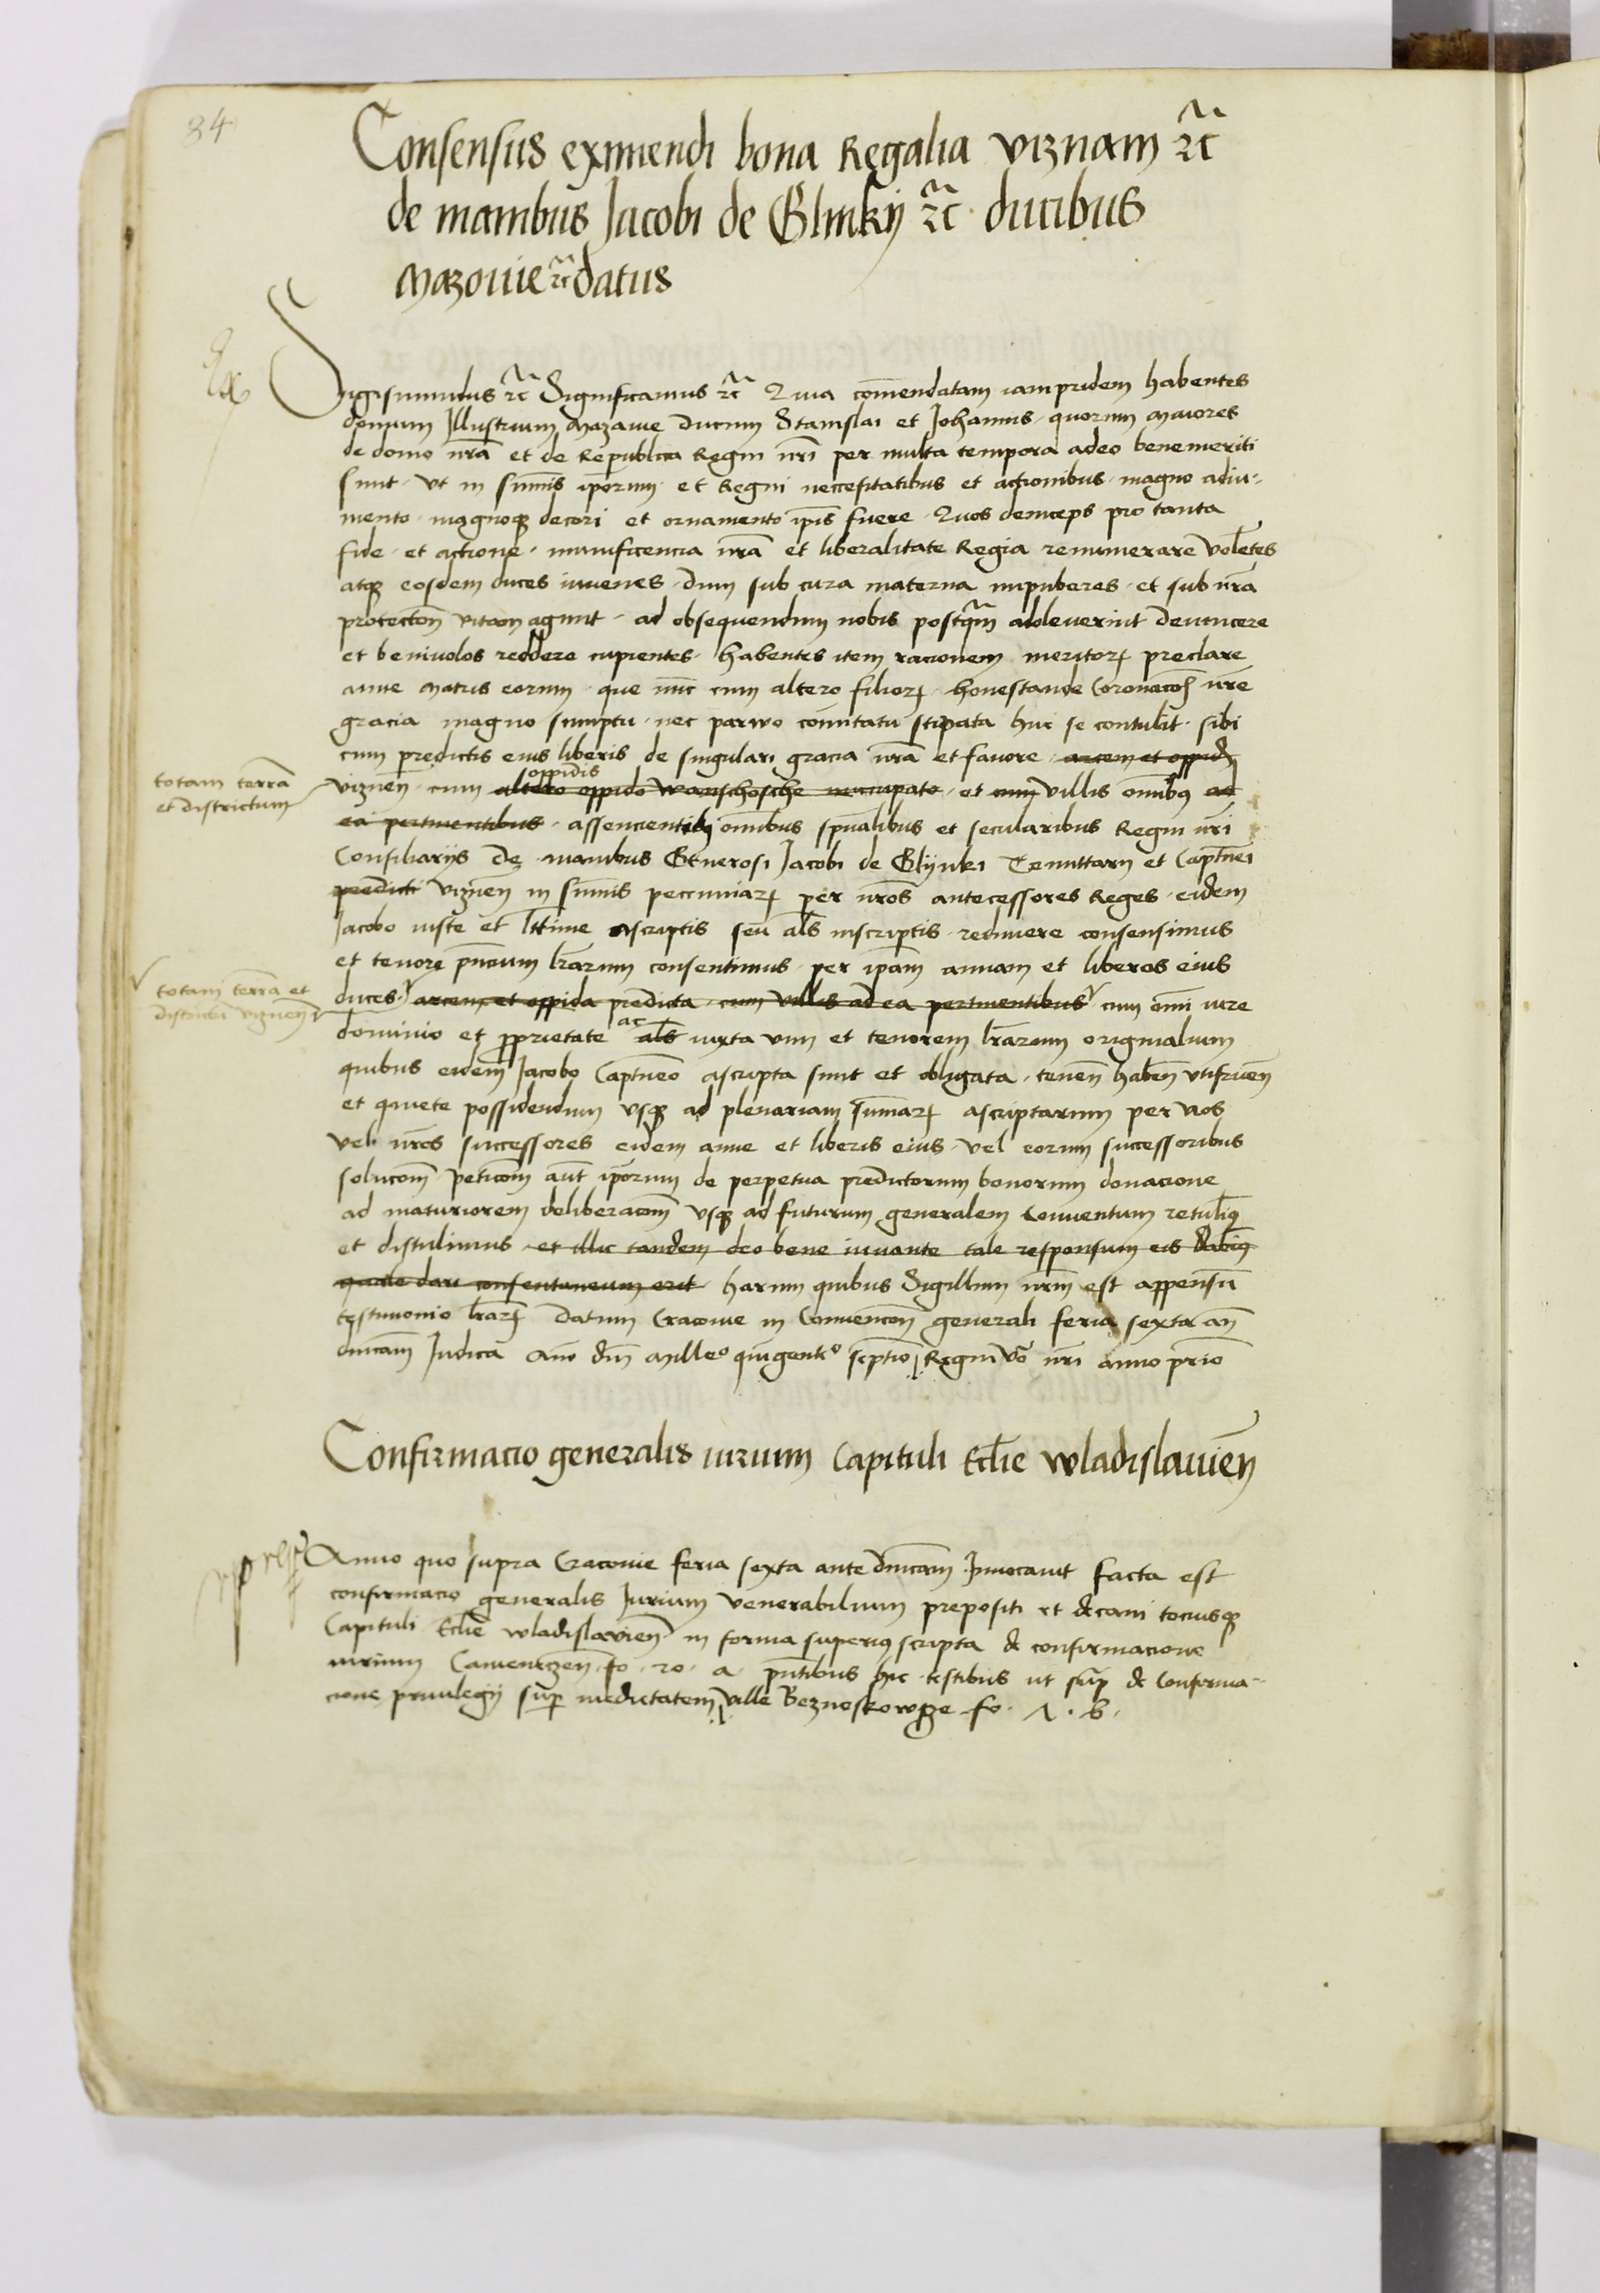 84
Consensus eximendi bona Regalia viznam ꝛc̃
de manibus Jacobi de Glinkÿ ꝛc̃ ducibus
Mazouie ꝛc̃ datus
Sigismundus ꝛc̃ Significamus ꝛc̃ Quia com̄endatam iampridem habentes
domum Illustrium Mazouie Ducum Stanislai et Johannis quorum maiores
de domo nr̄a et de Republica Regni nr̄i per multa tempora adeo benemeriti
sunt vt in sum̄is ipōrum et Regni neccesitatibus et actionibus magno adiu-
mento magnoqꝫ decori et ornamento ip̄is fuere Quos deinceps pro tanta
fide et actione munificencia nr̄a et liberalitate Regia remunerare vol̄etes
atqꝫ eosdem duces iuuenes dum sub cura materna impuberes et sub nr̄a
protecton̄ vitam agunt ad obsequendum nobis postq̄m adoleuerint deuincere
et beniuolos reddere cupientes habentes item racionem meritorꝝ preclare
anne matris eorum que nūc cum altero filiorꝝ honestande Coronacōīs nr̄e
gracia magno sumptu nec parwo comitatu stipata huc se contulit sibi
cum predictis eius liberis de singulari gracia nr̄a et fauore arcem et oppid̄
totam terrā
et districtum
viznen̄ cum altero oppido wanschosche nuncupato oppidis et cum villis omībꝫ ad
ea pertinentibus assencientibꝫ omībus spūalibus et secularibus Regni nr̄i
Consiliarijs De manibus Generosi Jacobi de Glÿnki Tenuttarij et Captīnei
predicti viznen̄ in sum̄is peccuniarꝝ per nr̄os antecessores Reges eidem
Jacobo iuste et lītime ascriptis seu al̄s inscriptis redimere consensimus
et tenore pn̄cium lr̄arum consentimus per ip̄am annam et liberos eius
totam terrā et
districtū viznen̄
duces arcem et oppida predicta cum villis ad ea pertinentibus cum om̄i iure
dominio et proprietate ac al̄s iuxta vim et tenorem lr̄arum originalium
quibus eidem Jacobo Captīneo ascripta sunt et obligata tenen̄ haben̄ vtifruen̄
et quiete possidendum vsqꝫ ad plenariam sum̄arꝝ ascriptarum per nos
vel nr̄os successores eidem anne et liberis eius vel eorum successoribus
solucom̄ peticom̄ aūt ipōrum de perpetua predictorum bonorum donacione
ad maturiorem deliberacom̄ vsqꝫ ad futurum generalem Conuentum retulimꝰ
et distulimus et illic tandem deo bene iuuante tale responsum eis dabimꝰ
quale dari consentaneum erit harum quibus Sigillum nr̄m est appensū
testimonio lr̄arꝝ Datum Cracouie in Conuencon̄ generali feria sexta an̄
dn̄icam Judica Anō dn̄i Milleᵒ quīgentᵒ septīo Regni vō nr̄i anno primo
Confirmacio generalis iurium Capituli Ecl̄ie wladislauien̄
Anno quo supra Cracouie feria sexta ante dn̄icam Inuocauit facta est
confirmacio generalis Jurium venerabilium prepositi et decani tociusqꝫ
Capituli Ecl̄ie wladislauien̄ in forma superiꝰ scripta de confirmacione
iurium Camenczen̄ fo. 20. a pn̄tibus hic testibus ut sup̄ de Confirma-
cione priuilegij sup̄ medietatem ville Beznoskowcze fo. 1. b.